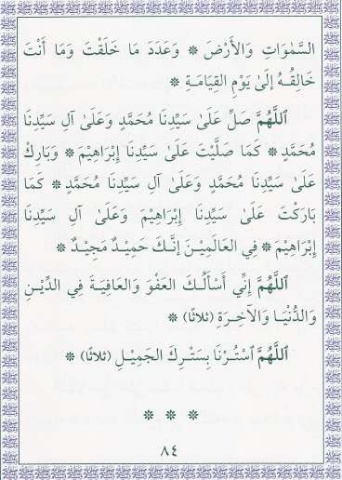 السَّمٰوَاتِ وَالأَرْضَ ❋ وَعَدَدَ مَا خَلَقْتَ وَمَا أَنْتَ
خَالِقُهُ إِلىٰ يَوْمِ القِيَامَةِ ❋
اَللَّهُمَّ صَلِّ عَلَىٰ سَيِّدِنَا مُحَمَّدٍ وَعَلَىٰ آلِ سَيِّدِنَا
مُحَمَّدٍ ❋ كَمَا صَلَّيْتَ عَلَىٰ سَيِّدِنَا إِبْرَاهِيْمَ ❋ وَبَارِكْ
عَلَىٰ سَيِّدِنَا مُحَمَّدٍ وَعَلَىٰ آلِ سَيِّدِنَا مُحَمَّدٍ ❋ كَمَا
بَارَكْتَ عَلَىٰ سَيِّدِنَا إِبْرَاهِيْمَ وَعَلَىٰ آلِ سَيِّدِنَا
إِبْرَاهِيْمَ ❋ فِي العَالَمِيْنَ إِنَّكَ حَمِيْدٌ مَجِيْدٌ ❋
اَللَّهُمَّ إِنِّي أَسْأَلُكَ العَفْوَ وَالعَافِيَةَ فِي الدِّيْنِ
وَالدُّنْيَا وَالآخِرَةِ (ثلاثا) ❋
اَللَّهُمَّ اسْتُرْنَا بِسَتْرِكَ الجَمِيْلِ (ثلاثا) ❋
❋ ❋ ❋
٨٤